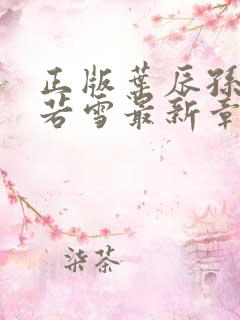 正版叶辰孙
若雪最新章
柒茶